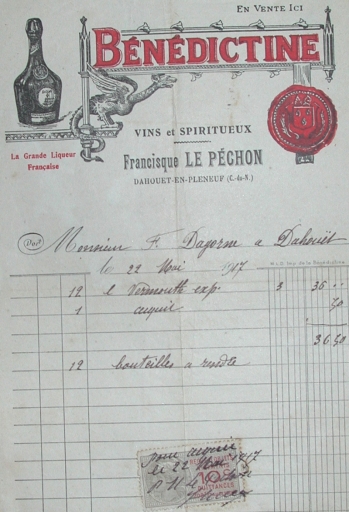 EN VENTE ICI
BÉNÉDICTINE
La Grande Liqueur
Française
VINS et SPIRITUEUX
Francisque LE PÉCHON
DAHOUET-EN-PLENEUF (C.-du-N.)
Doit Monsieur F. Dagorne a Dahouët
le 22 Mai 1917
12 l Vermouth exp. 3 36 "
1 acquit 50
36 50
12 bouteilles a rendre
pour acquit
le 22 Mai 1917
10c
QUITTANCES